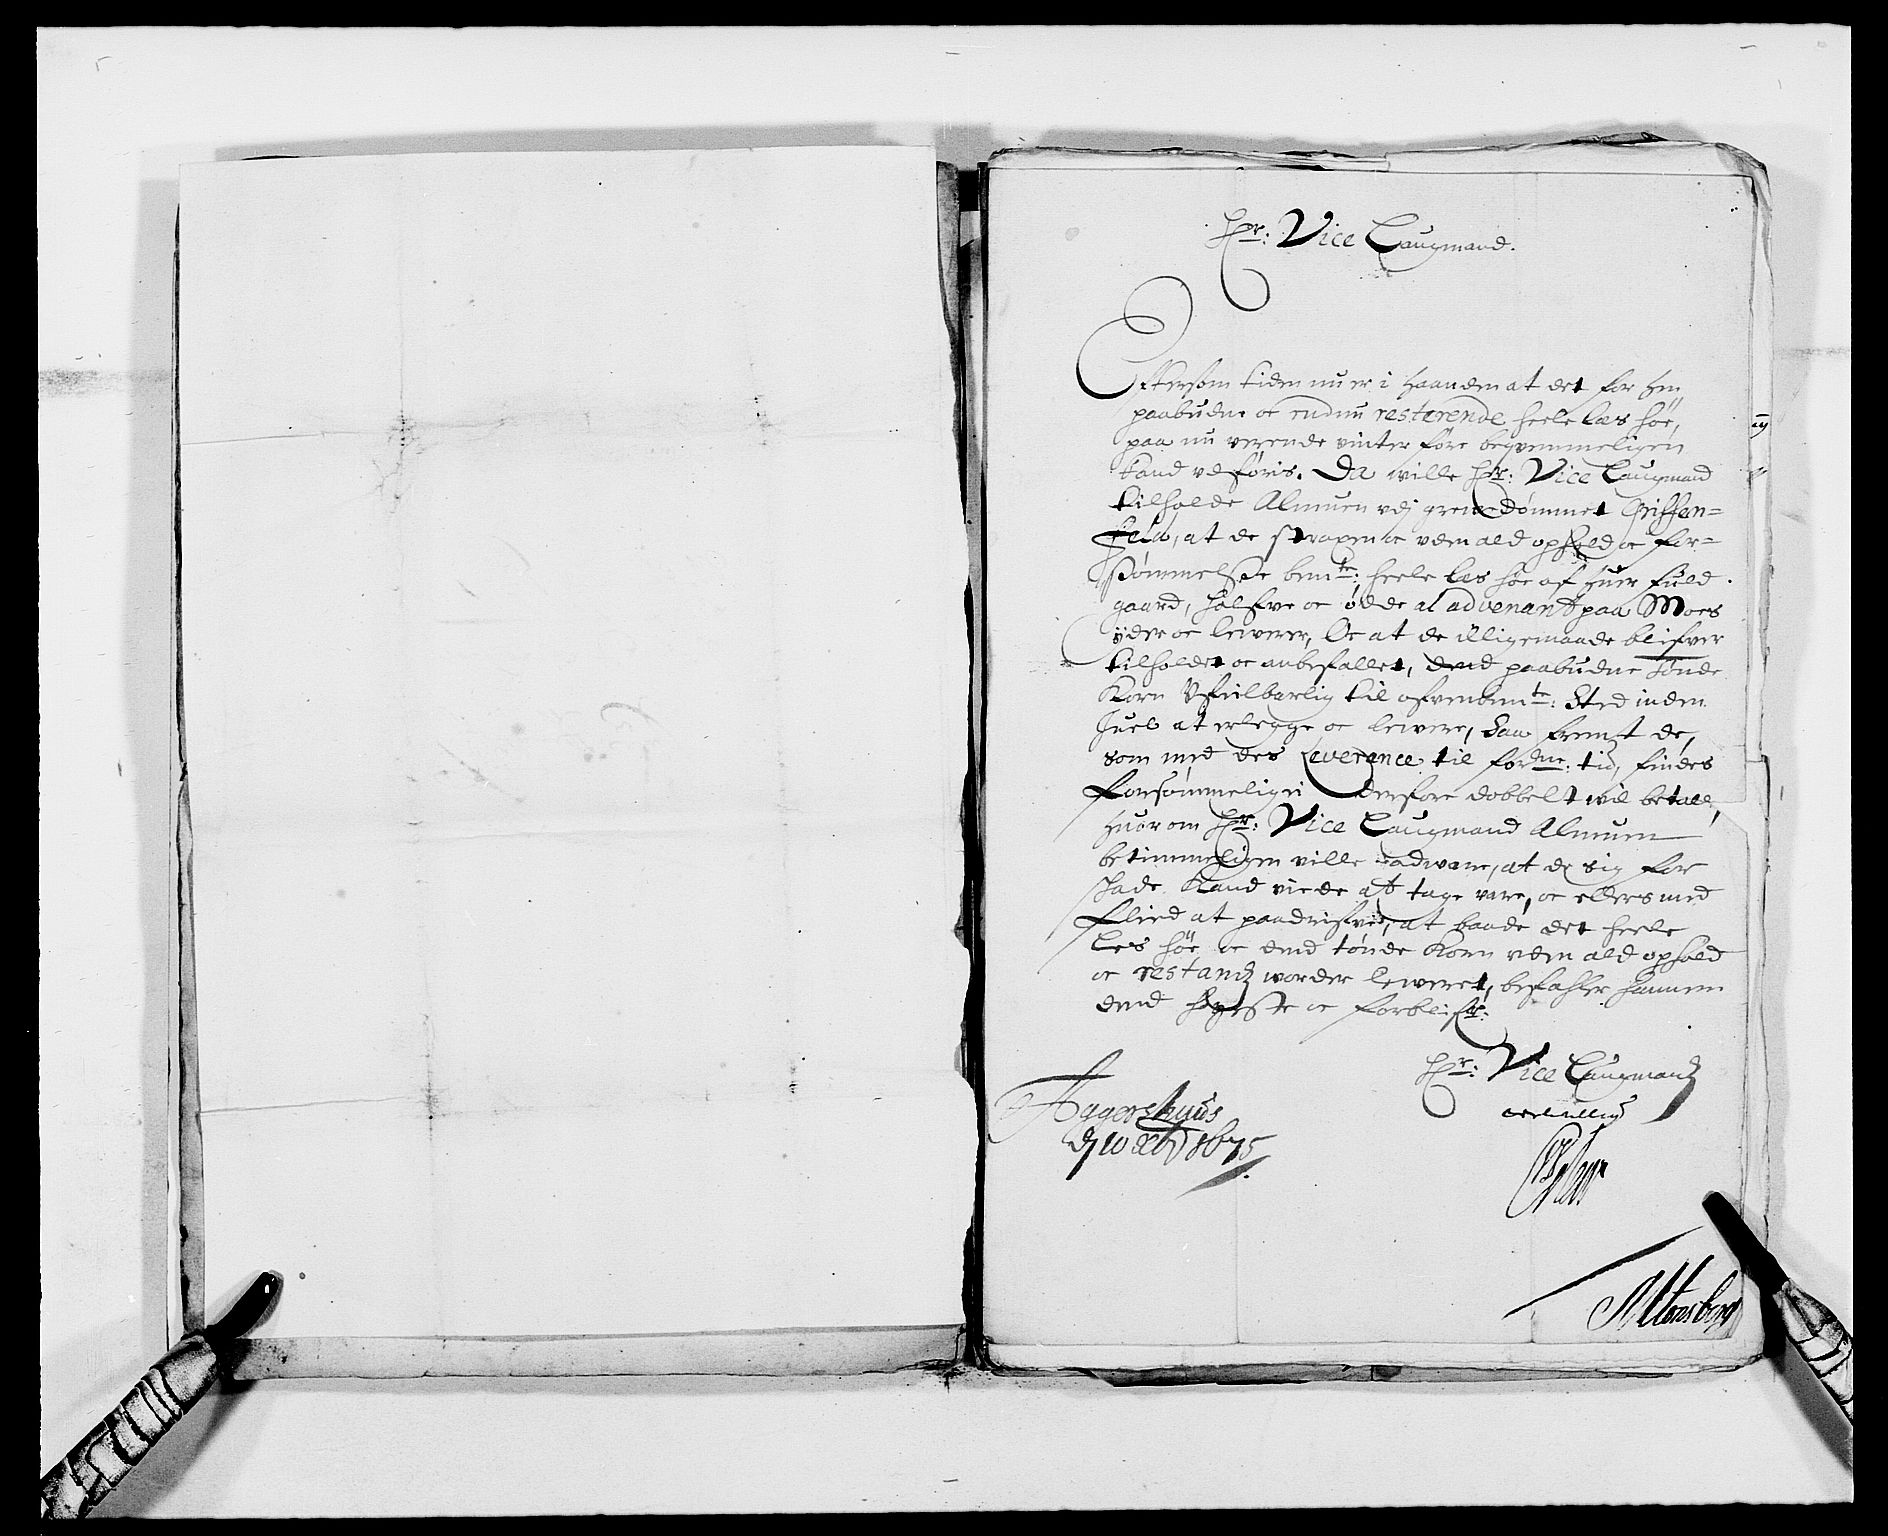 Hr: Vice Laugmand.
Eftersom tiden nu er i haanden at det for hen
paabudne oc endnu resterende heele læs høe,
paa nu verende vinter føre beqvemmeligen
kand vdføris. Da wille Hr: Vice Laugmand
tilholde Almuen vdj grevedømmet Griffen-
feld, at de straxen oc vden ald ophold oc for-
sømmelsse bemte: heele læs høe af huer fuld
gaard, halfve oc ødde al advenant paa Moes
ÿder oc leverer, Oc at de illigemaade blifver
tilholdet oc anbefallet, dend paabudne tønde
Korn Vfeilbarlig til ofvenbemte: Sted inden
Juel at erlegge oc levere, Saa fremt de,
som med des Leverance til fordne: tid, findes
forsømmeligei derfore dobbelt wil betale,
huor om Hr: Vice Laugmand Almuen
betimmeligen ville advare, at de sig for
skade Kand viede at tage vare, oc ellers med
flied at paadrifve, at baade det heele
les høe oc dend tønde Korn vden ald ophold
oc restand worder leveret, befahler hannem
dend høyeste oc forblifr:
Hr: Vice Laugmand
vervillig
Aggershuus
d 10 Xb 1675